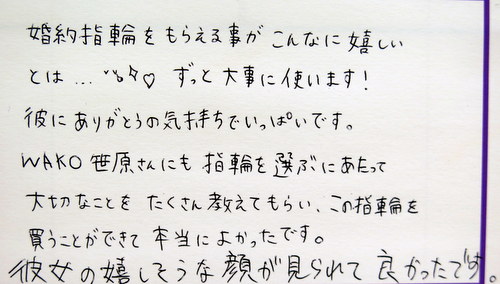 婚約指輪をもらえる事がこんなに嬉しい
とは…♡ ずっと大事に使います!
彼にありがとうの気持ちでいっぱいです。
WAKO 笹原さんにも指輪を選ぶにあたって
大切なことをたくさん教えてもらい、この指輪を
買うことができて本当によかったです。
彼女の嬉しそうな顔が見られて良かったです。